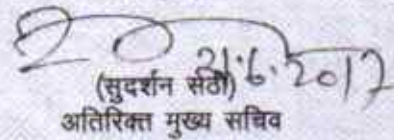 21.6.2017
(सुदर्शन सेठी)
अतिरिक्त मुख्य सचिव